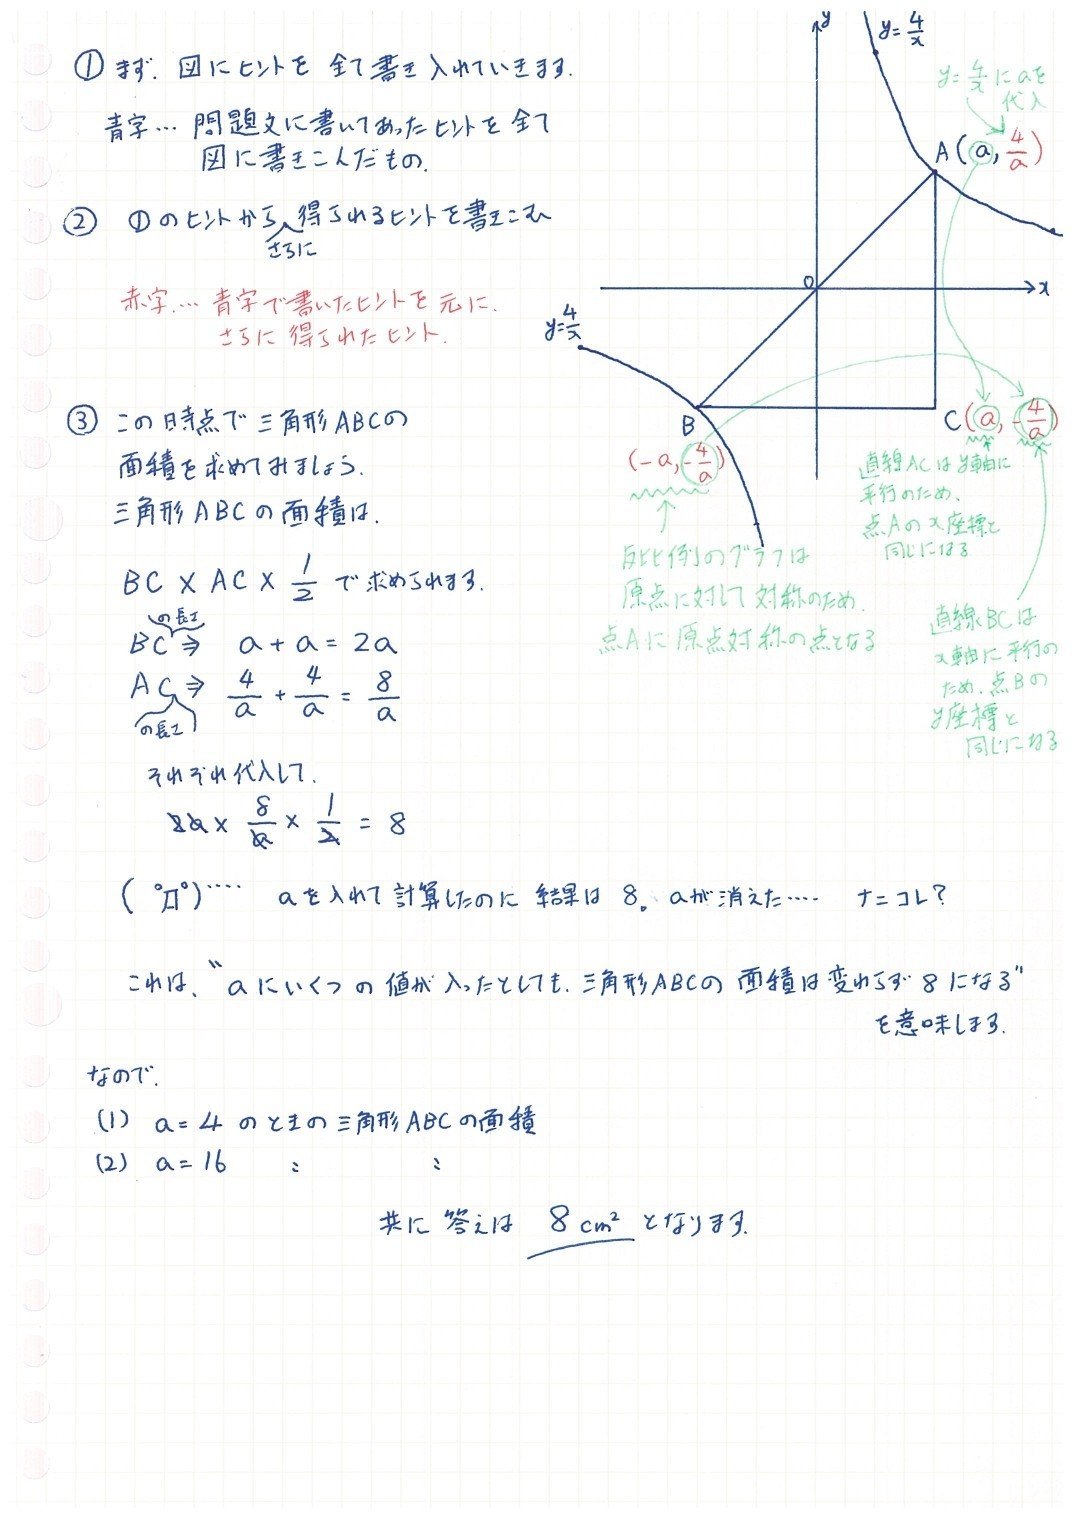 ① まず、図にヒントを 全て書き入れていきます。
青字… 問題文に書いてあったヒントを全て
図に書きこんだもの。
② ①のヒントから さらに 得られるヒントを書きこむ
赤字… 青字で書いたヒントを元に、
さらに得られたヒント。
③ この時点で三角形ABCの
面積を求めてみましょう。
三角形ABCの面積は、
BC × AC × 1/2 で求められます。
BCの長さ ⇒ a + a = 2a
ACの長さ ⇒ 4/a + 4/a = 8/a
それぞれ代入して、
2a × 8/a × 1/2 = 8
( ﾟДﾟ)‥‥ aを入れて計算したのに 結果は 8。aが消えた‥‥ ナニコレ?
これは、〝aにいくつの値が入ったとしても、三角形ABCの面積は変わらず8になる〟
を意味します。
なので、
(1) a=4 のときの三角形ABCの面積
(2) a=16 : :
共に 答えは 8cm² となります。
y
y=4/x
y=4/xにaを
代入
A(a, 4/a)
O
x
y=4/x
B
(-a, -4/a)
C(a, -4/a)
反比例のグラフは
原点に対して対称のため、
点Aに原点対称の点となる
直線ACはy軸に
平行のため、
点Aのx座標と
同じになる
直線BCは
x軸に平行の
ため、点Bの
y座標と
同じになる